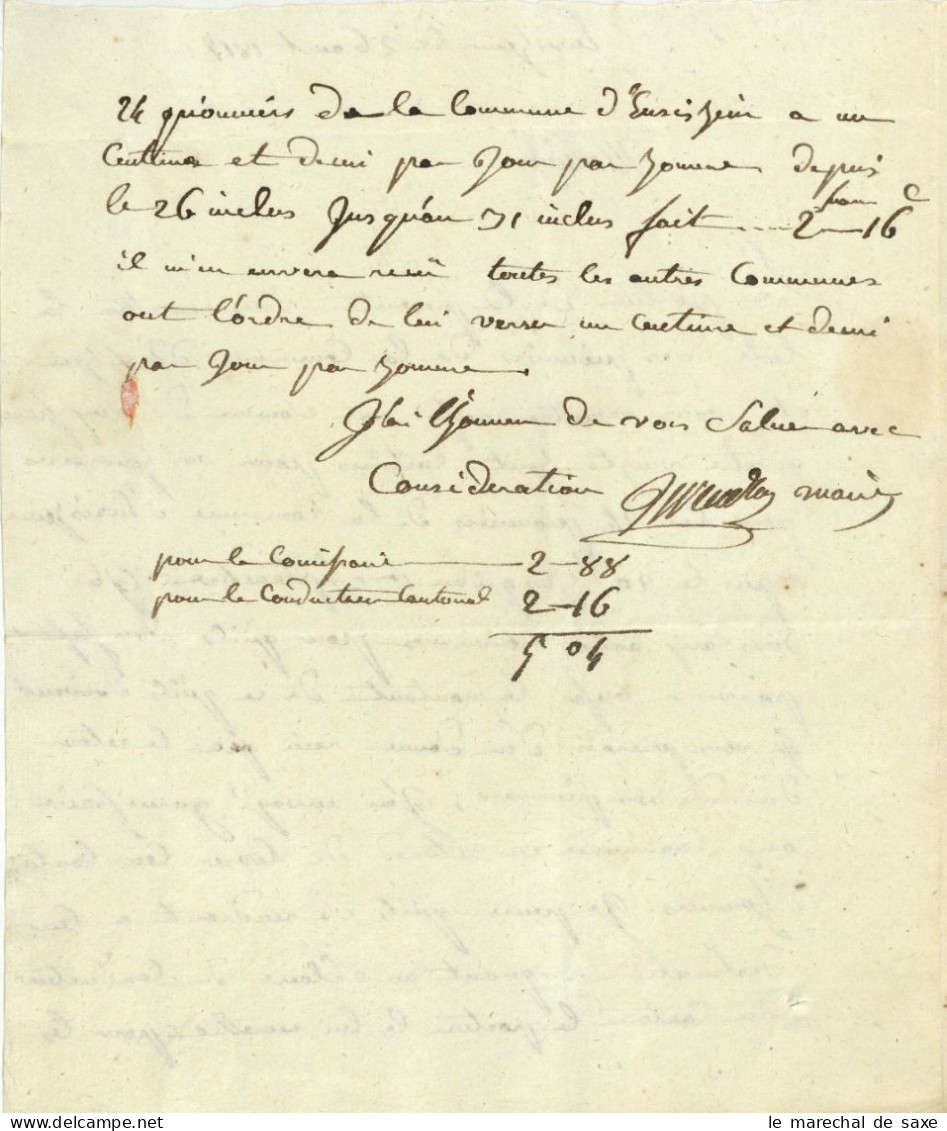 24 pionniers de la Commune d'Ensisheim a un
Centime et demi par Jour par homme depuis
le 26 inclus Jusqu'au 31 inclus fait .... 2 fran 16 c
il m'en envera recu toutes les autres Communes
ont l'ordre de lui verser un Centime et demi
par Jour par homme.
J'ai l'honneur de vous Saluer avec
Consideration maire
pour le Comissaire 2-88
pour le Conducteur Cantonal 2-16
5 04
le marechal de saxe